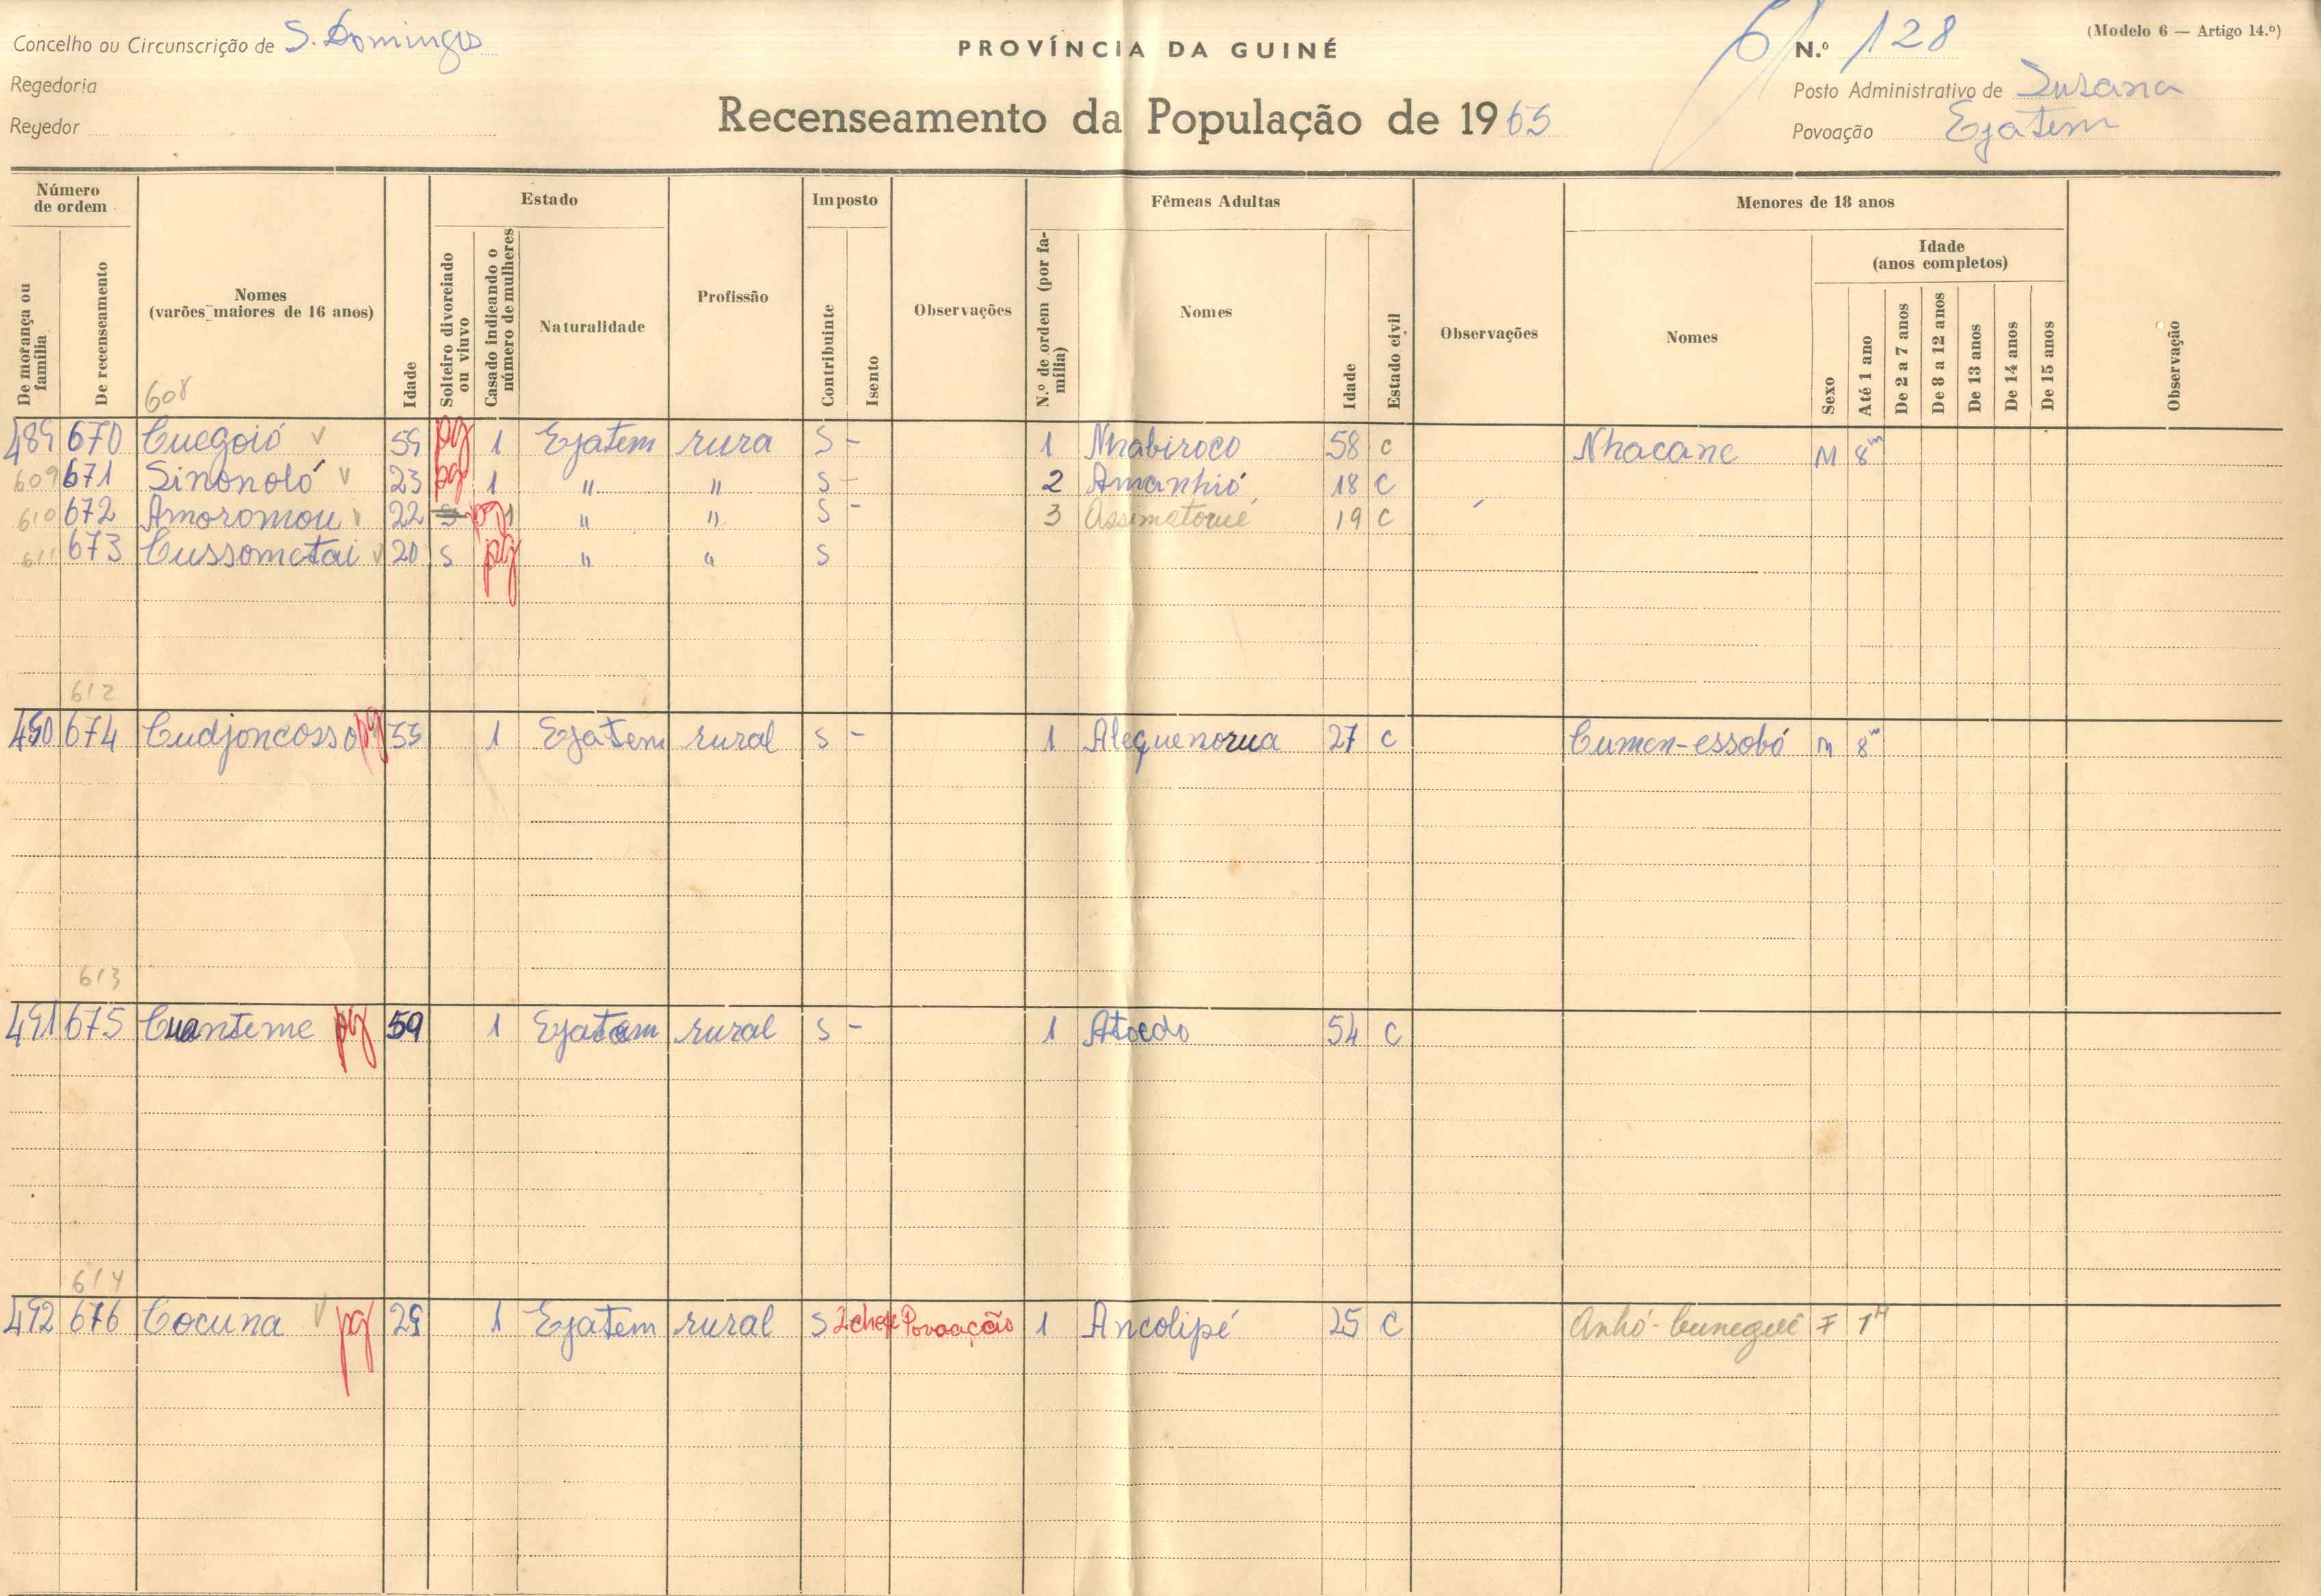 Concelho ou Circunscrição de S. Domingos
Regedoria
Regedor
PROVÍNCIA DA GUINÉ
Recenseamento da População de 1965
N.º 128
(Modelo 6 — Artigo 14.º)
Posto Administrativo de Susana
Povoação Ejatem
Número de ordem
De morança ou família
De recenseamento
Nomes
(varões maiores de 16 anos)
Idade
Estado
Solteiro divorciado ou viuvo
Casado indicando o número de mulheres
Naturalidade
Profissão
Imposto
Contribuinte
Isento
Observações
Fêmeas Adultas
N.º de ordem (por família)
Nomes
Idade
Estado civil
Observações
Menores de 18 anos
Nomes
Sexo
Idade
(anos completos)
Até 1 ano
De 2 a 7 anos
De 8 a 12 anos
De 13 anos
De 14 anos
De 15 anos
Observação
608
489 670 Cuegoió v 59 pg 1 Ejatem rura S - 1 Nhabiroco 58 c Nhacane M 8m
609 671 Sinonoló v 23 pg 1 " " S - 2 Amanhió 18 C
610 672 Amoromou v 22 s pg 1 " " S - 3 Assimatorué 19 C
611 673 Cussometai v 20 s pg " " S
612
490 674 Cudjoncosso pg 55 1 Ejatem rural S - 1 Alequenorua 27 c Cumen-essobó M 8m
613
491 675 Cuanteme pg 59 1 Ejatem rural S - 1 Atoedo 54 C
614
492 676 Cocuna v pg 29 1 Ejatem rural S 2 chefe Povoação 1 Ancolipé 25 C Anhó-Cuneguei F